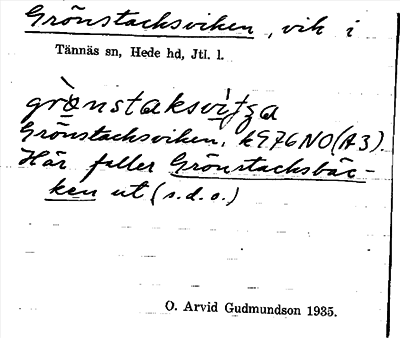 Grönstacksviken, vik i
Tännäs sn, Hede hd, Jtl. l.
grònstaksvìtza
Grönstacksviken, k976NO(A3).
Här faller Grönstacksbäc-
ken ut (s.d.o.)
O. Arvid Gudmundson 1935.